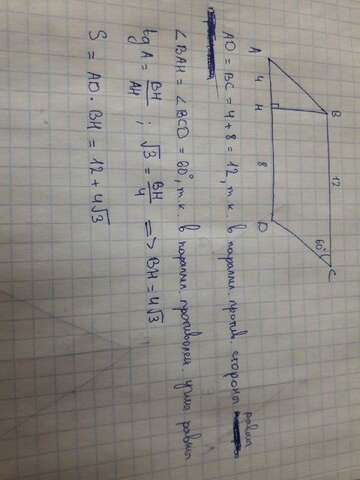 B 12 C
60°
A 4 H 8 D
AD = BC = 4+8 = 12, т.к. в паралл. против. стороны равны
∠BAH = ∠BCD = 60°, т.к. в паралл. противолеж. углы равны
tg A = BH/AH ; √3 = BH/4 => BH = 4√3
S = AD · BH = 12 + 4√3